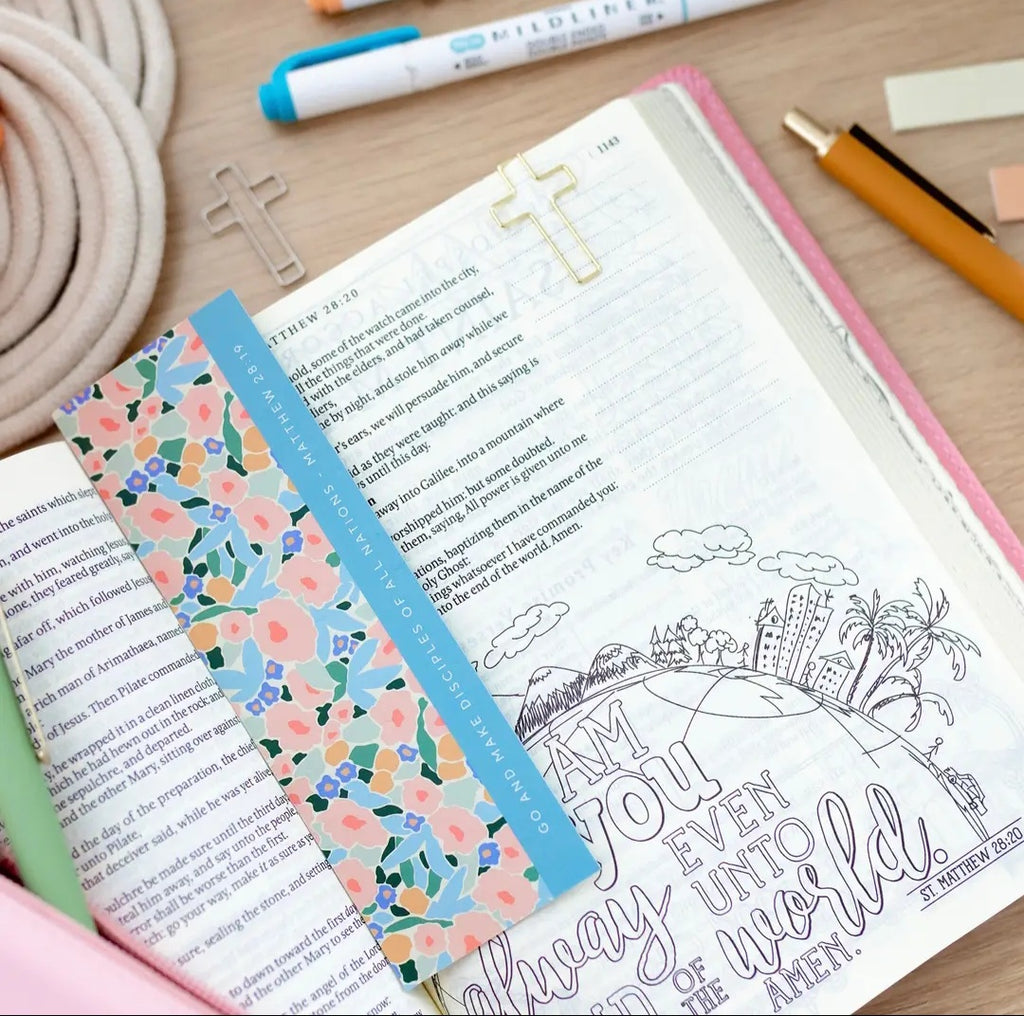 MILDLINER
DOUBLE ENDED
1143
TTHEW 28:20
old, some of the watch came into the city,
ll the things that were done.
d with the elders, and had taken counsel,
liers,
ne by night, and stole him away while we
r's ears, we will persuade him, and secure
d as they were taught: and this saying is
s until this day.
n
away into Galilee, into a mountain where
orshipped him: but some doubted.
them, saying, All power is given unto me
ations, baptizing them in the name of the
oly Ghost:
ings whatsoever I have commanded you:
nto the end of the world. Amen.
GO AND MAKE DISCIPLES OF ALL NATIONS - MATTHEW 28:19
he saints which slept
n, and went into the holy
e with him, watching Jesus
one, they feared greatly, say
g afar off, which followed Jesus
Mary the mother of James and
a rich man of Arimathaea, named
dy of Jesus. Then Pilate commanded
y, he wrapped it in a clean linen cloth
hich he had hewn out in the rock: and
he sepulchre, and departed.
and the other Mary, sitting over against
d the day of the preparation, the chief
unto Pilate,
that deceiver said, while he was yet alive
oulchre be made sure until the third day
teal him away, and say unto the people,
rror shall be worse than the first.
tch: go your way, make it as sure as
sure, sealing the stone, and setting
to dawn toward the first day
ad the other Mary to see the
the angel of the Lord
tone from the door
now:
AM
you
alway
EVEN
UNTO
OF
THE
world.
AMEN.
ST. MATTHEW 28:20